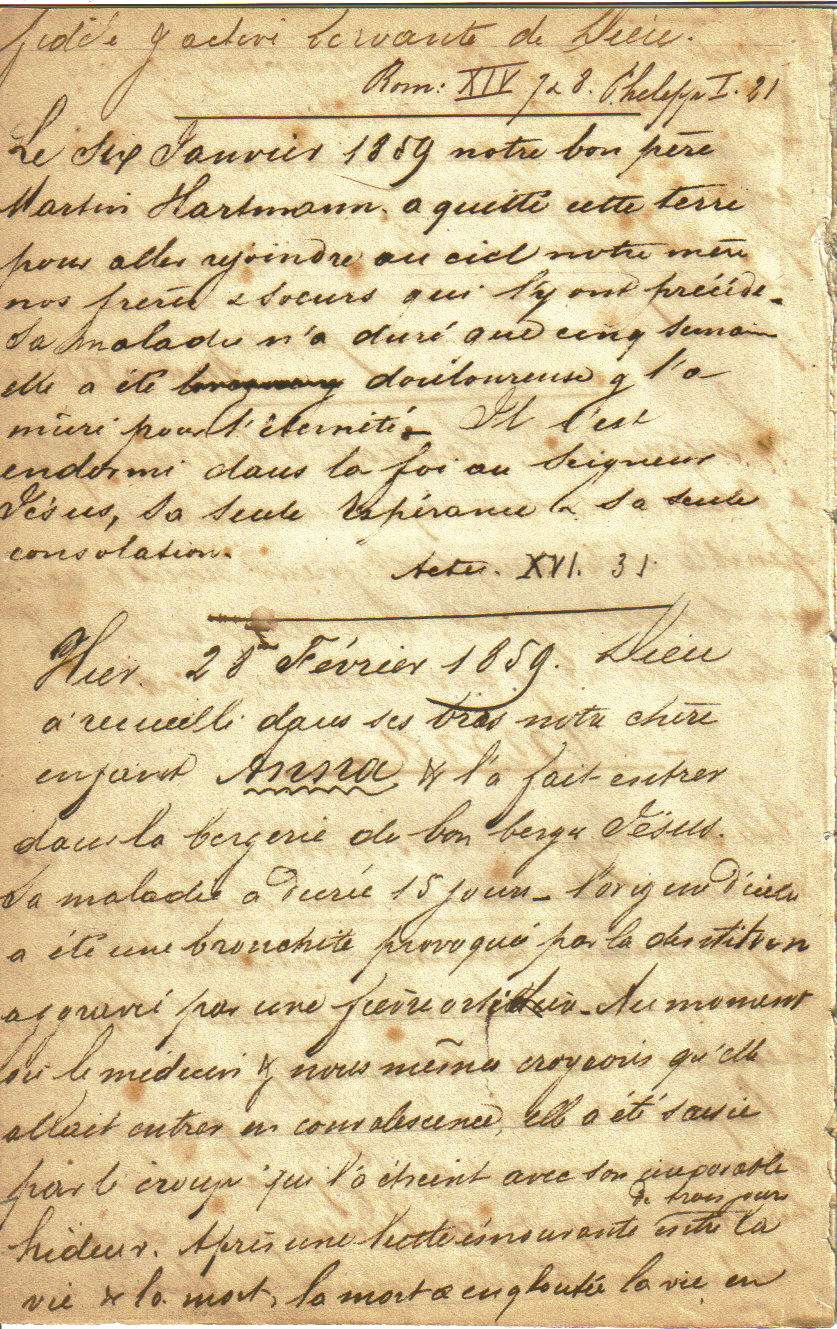 fidèle & active servante de Dieu.
Rom: XIV 7 & 8. Philipp I. 21
Le Six Janvier 1859 notre bon père
Martin Hartmann. a quitté cette terre
pour aller rejoindre au ciel notre mère
nos frères & soeurs qui l'y ont précédé.
Sa maladie n'a duré que cinq semain
elle a été douloureuse & l'a
mûri pour l'éternité. Il s'est
endormi dans la foi au Seigneur
Jésus, sa seule Espérance & sa seule
consolation.
Actes. XVI. 31
Hier 28 Février 1859. Dieu
a recueilli dans ses bras notre chère
enfant Anna & l'a fait entrer
dans la bergerie du bon berger Jésus.
Sa maladie a durée 15 jours - l'origine d'icelle
a été une bronchite provoquée par la dentition
aggravée par une fièvre Au moment
où le médecin & nous mêmes croyions qu'elle
allait entrer en convalescence, elle a été saisie
par le croup qui l'a étreint avec son
de trois jours
hideur. Après une lutte émouvante entre la
vie & la mort, la mort a engloutie la vie, en